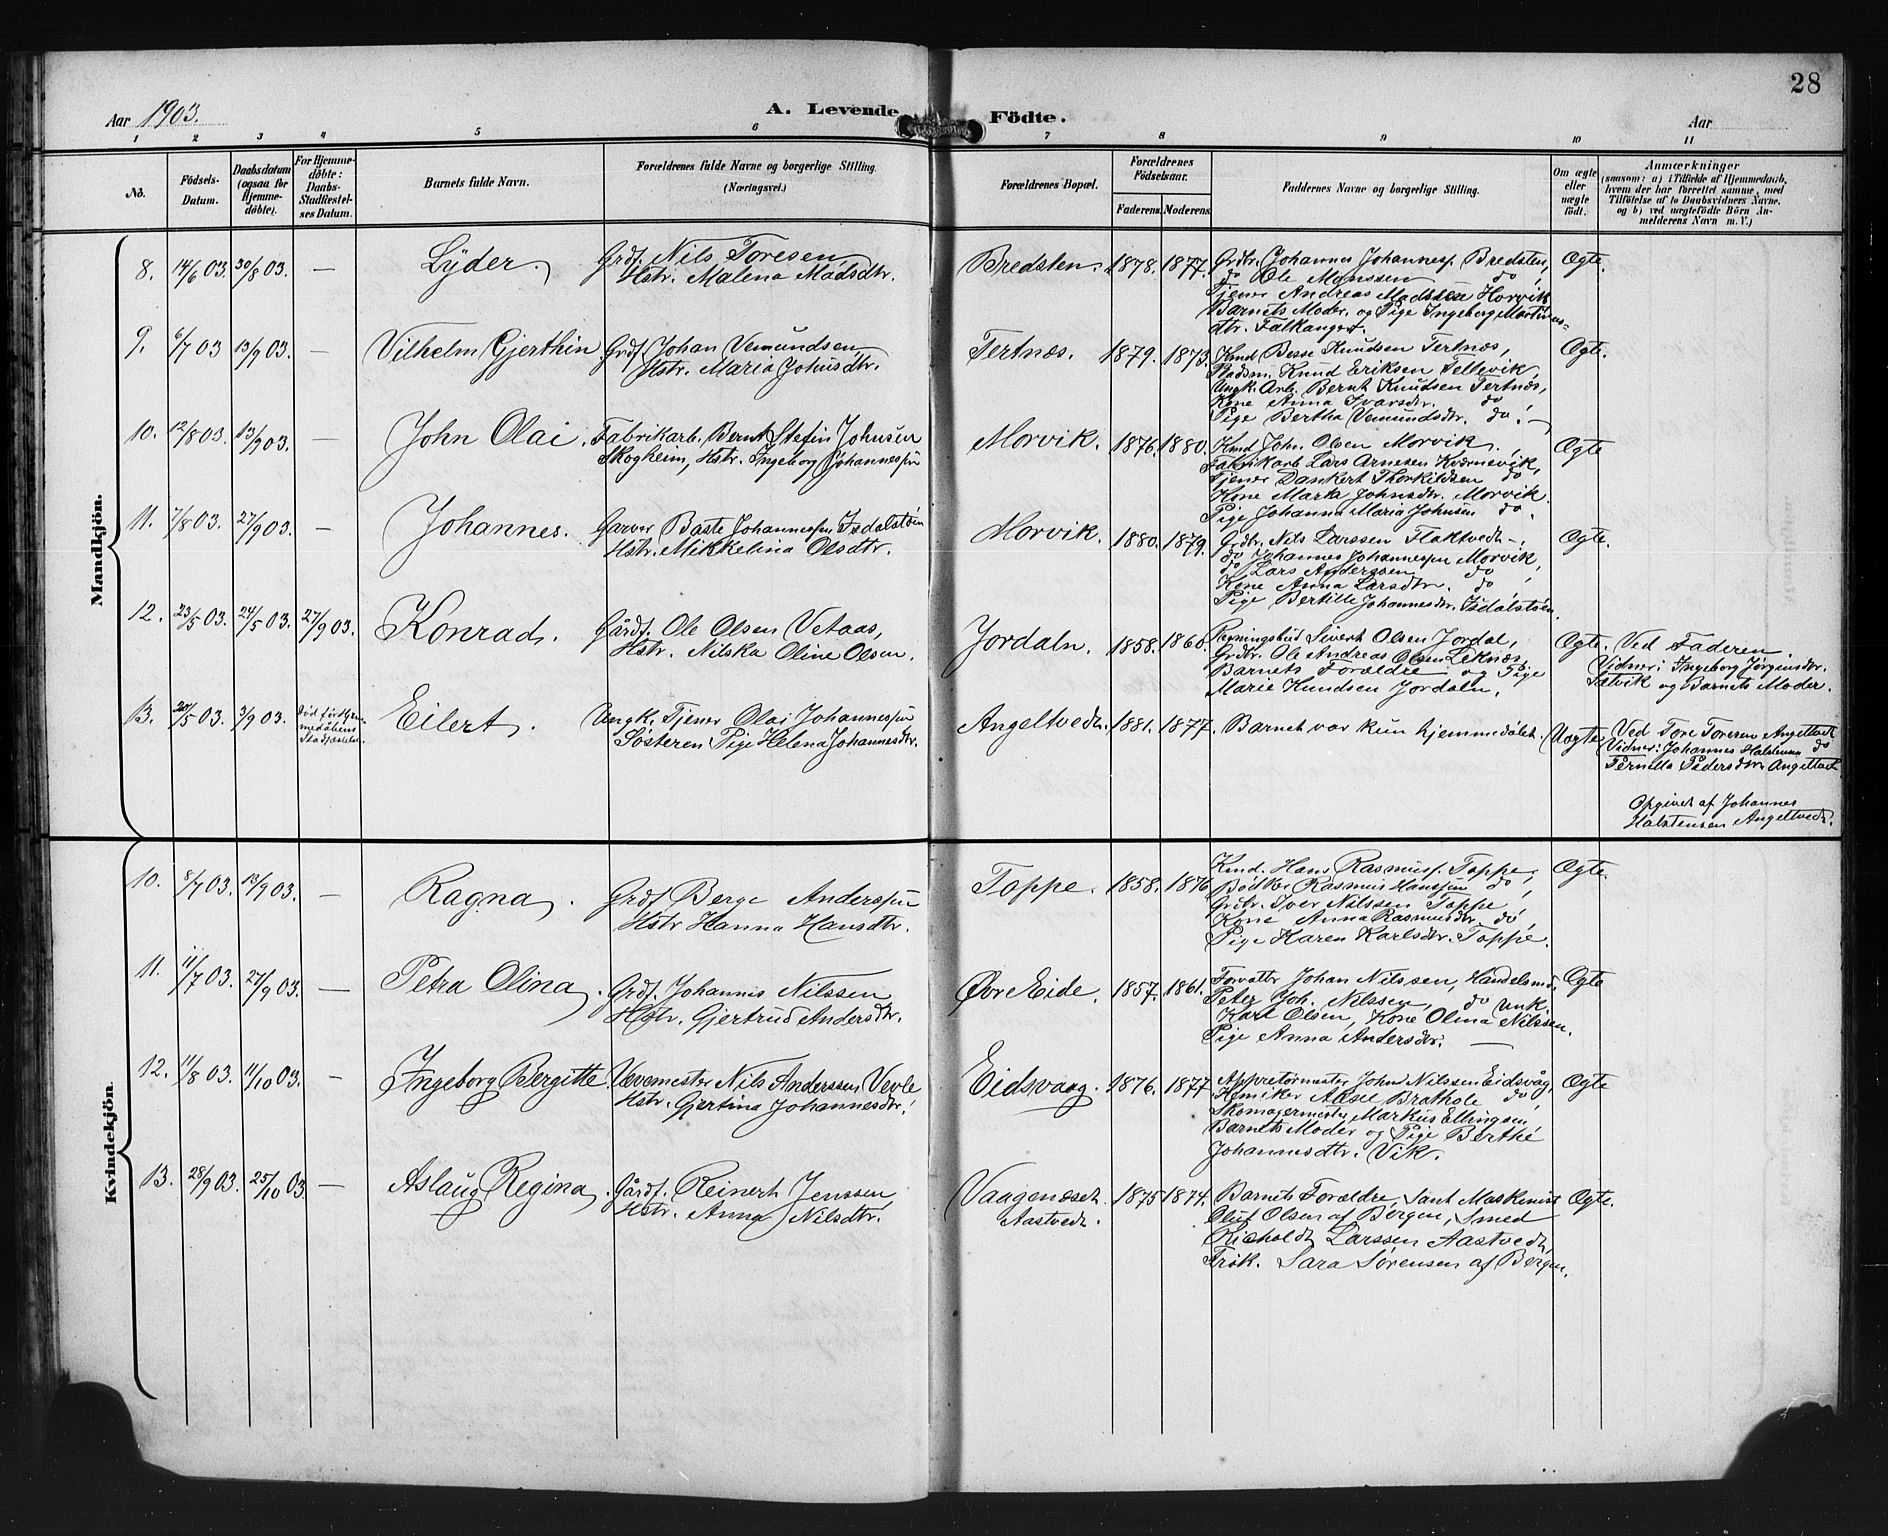 28
Aar 1903.
A. Levende Födte.
Aar
1 2 3 4 5 6 7 8 9 10 11
No.
Födsels-
Datum.
Daabsdatum
(ogsaa för
Hjemme-
döbte).
For Hjemme-
döbte:
Daabs-
Stadfæstel-
ses Datum.
Barnets fulde Navn.
Forældrenes fulde Navne og borgerlige Stilling.
(Næringsvei.)
Forældrenes Bopæl.
Forældrenes
Födselsaar.
Faderens. Moderens.
Faddernes Navne og borgerlige Stilling.
Om ægte
eller
uægte
födt.
Anmærkninger
(saasom: a) i Tilfælde af Hjemmedaab,
hvem der har forrettet samme, med
Tilföielse af to Daabsvidners Navne.
og b) ved uægtefödte Börn An-
melderens Navn m. V.)
Mandkjön.
8. 14/6 03. 30/8 03. — Lyder. Grdf. Nils Toresen
Hstr. Malena Madsdtr.
Bredsten. 1878. 1877. Grdbr. Johannes Johannesp. Bredsten,
do Ole Monssen do
Tjener Andreas Madssen Horvik
Barnets Moder og Pige Ingeborg Martines-
dtr. Falkanger.
Ægte.
9. 6/7 03 13/9 03. — Vilhelm Gjerthin. Grdf. Johan Vemundsen
Hstr. Maria Johusdtr.
Tertnæs. 1879. 1873. Kmd Besse Knudsen Tertnæs,
Pladsm. Knud Eriksen Tellevik,
Ungk. Arb. Bernt Knudsen Tertnæs,
Kone Anna Ivarsdtr. do
Pige Bertha Vemundsdtr. do. —
Ægte.
10. 12/8 03. 13/9 03. — John Olai. Fabrikarb. Bernt Stefin Johnsen
Skogheim, Hstr. Ingeborg Johannespn
Morvik. 1876. 1880. Kmd John Olsen Morvik,
Fabrikarb Lars Arnesen Kværnevik,
Tjener Dankert Thorkildsen do
Kone Marta Johnsdtr. Morvik.
Pige Johanna Maria Johnsen do.
Ægte
11. 7/8 03. 27/9 03. — Johannes. Garver Baste Johannespn Isdalstøen
Hstr. Mikkelina Olsdtr.
Morvik. 1880. 1879. Grdbr. Nils Larssen Flaktvedt —,
do Johannes Johannespn Morvik,
do Lars Anderssen do,
Kone Anna Larsdtr. do
Pige Bertille Johannesdtr. Isdalstøen
Ægte.
12. 23/5 03. 24/5 03. 27/9 03. Konrad. Gårdf. Ole Olsen Vetaas,
Hstr. Nilska Oline Olsen.
Jordaln. 1858. 1860. Regningsbud Sivert Olsen Jordal,
Grdbr. Ole Andreas Olsen Leknæs,
Barnets Forældre og Pige
Marie Knudsen Jordaln.
Ægte. Ved Faderen.
Vidner: Ingeborg Jörginsdtr.
Sætvik og Barnets Moder.
13. 20/5 03. 3/9 03. Eilert. Ungk. Tjener Olai Johannespn
Søsteren: Pige Helena Johannesdtr.
Angeltvedt. 1881. 1877. Barnet var kun hjemmedøbt. Uægte. Ved Tore Toresen Angeltvedt
Vidner: Johannes Halstensen do
Pernilla Pedersdtr. Angeltvedt
Opgivet af Johannes
Halstensen Angeltvedt.
Kvindekjön.
10. 8/7 03. 13/9 03. — Ragna. Grdf Berge Anderspn
Hstr Hanna Hansdtr.
Toppe. 1858. 1876 Kmd. Hans Rasmusp. Toppe,
Bødker Rasmus Hanspn do,
Grdbr. Iver Nilssen Toppe,
Kone Anna Rasmusdtr. do
Pige Karen Karlsdtr. Toppe.
Ægte.
11. 11/7 03. 27/9 03. — Petra Olina. Grdf. Johannis Nilssen
Hstr. Gjertrud Andersdtr.
Øvre Eide. 1857. 1861. Forvalter Johan Nilssen, Handelsmd.
Peter Joh. Nilssen, do Unk.
Karl Olsen, Kone Olina Nilssen.
Pige Anna Andersdtr. —
Ægte
12. 11/8 03. 11/10 03. — Ingeborg Bergitte. Vævemester Nils Anderssen Vevle
Hstr. Gjertina Johannesdtr.
Eidsvaag. 1876. 1877 Appretørmester John Nilssen Eidsvåg,
Kemiker Aasee Brathole do,
Skomagermester Markus Ellingsen
Barnets Moder og Pige Berthe
Johannesdtr. Vik.
Ægte
13. 28/9 03. 25/10 03. — Aslaug Regina. Gårdf. Reinert Jenssen
Hstr. Anna Nilsdtr.
Vaagenæset
Aastvedt.
1875 1874. Barnets Forældre, samt Maskinist
Oluf Olsen af Bergen, Smed
Richoldt Larssen Aastvedt,
Frøk. Sara Sørensen af Bergen.
Ægte.